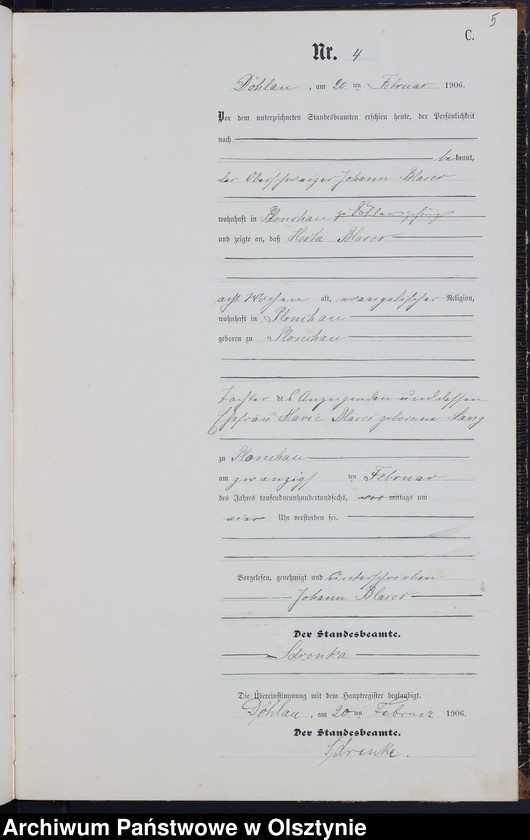 5
C.
Nr. 4
Döhlau, am 20 ten Februar 1906.
Vor dem unterzeichneten Standesbeamten erschien heute, der Persönlichkeit
nach
bekannt,
der Oberschweizer Johann Blaser
wohnhaft in Plonchau zu Döhlau gehörig
und zeigte an, daß Herta Blaser
acht Wochen alt, evangelischer Religion,
wohnhaft in Plonchau
geboren zu Plonchau
Tochter des Anzeigenden und dessen
Ehefrau Marie Blaser geborene Lang
zu Plonchau
am zwanzigsten Februar
des Jahres tausendneunhundertsechs, vormittags um
vier Uhr verstorben sei.
Vorgelesen, genehmigt und unterschrieben
Johann Blaser
Der Standesbeamte.
Sdrenka
Die Übereinstimmung mit dem Hauptregister beglaubigt.
Döhlau, am 20 ten Februar 1906.
Der Standesbeamte.
Sdrenka.
Archiwum Państwowe w Olsztynie